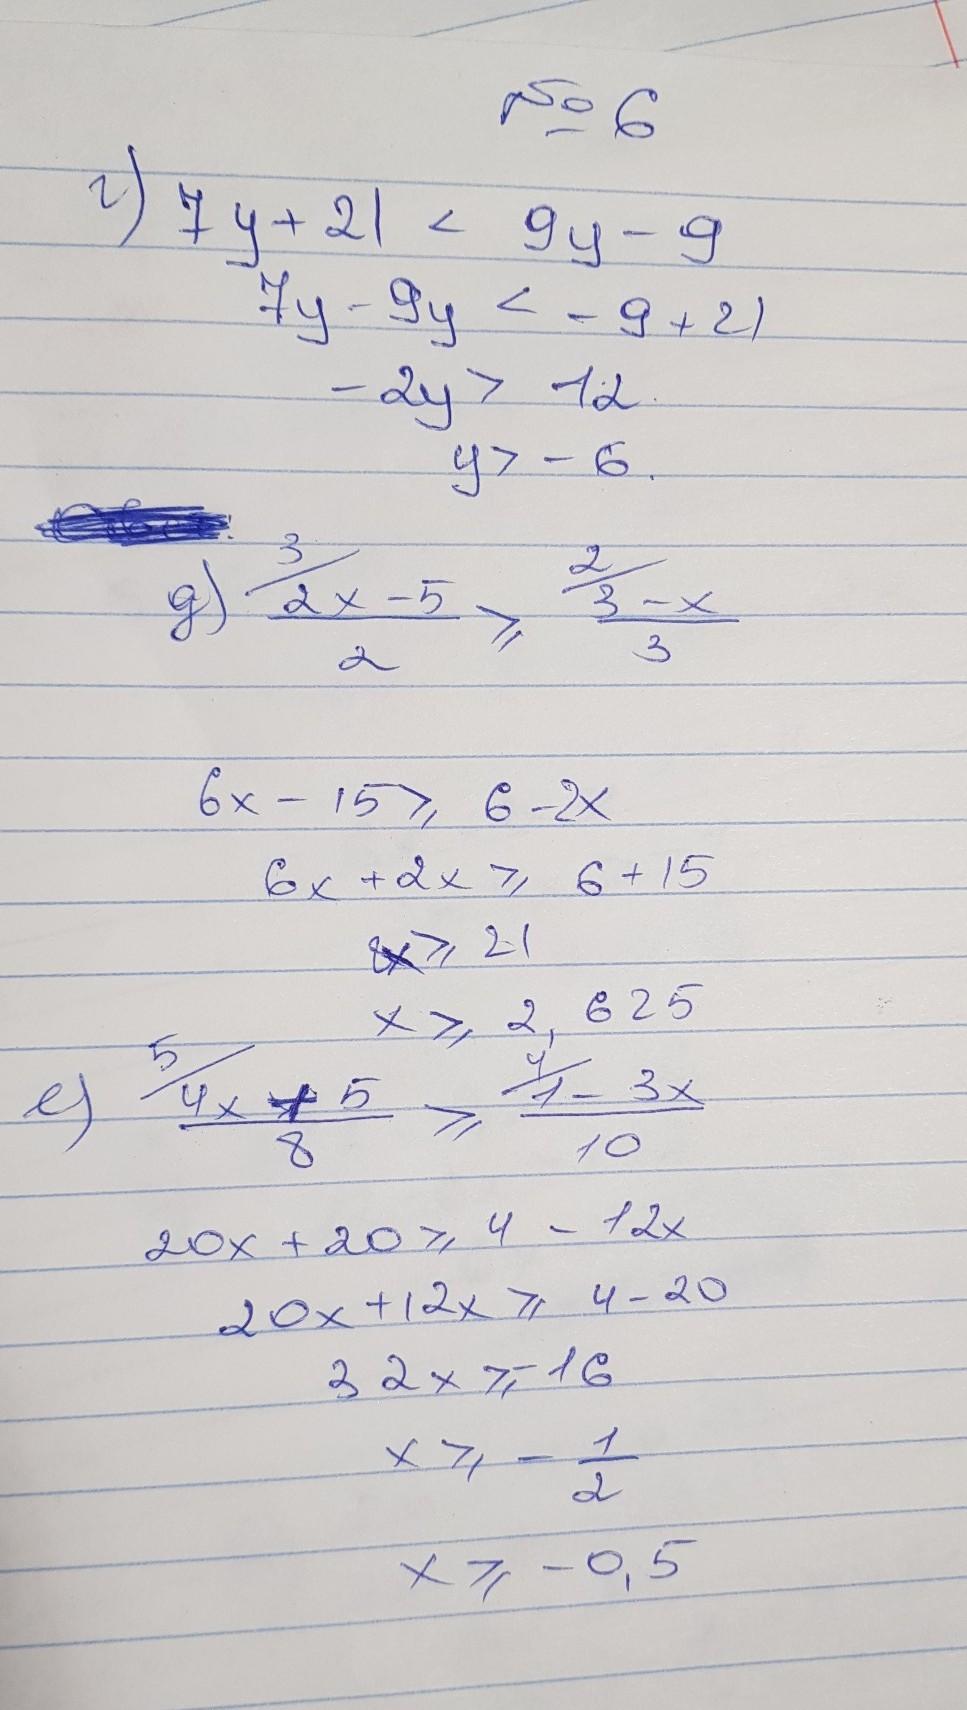 № 6
г) 7y + 21 < 9y - 9
7y - 9y < - 9 + 21
- 2y > 12.
y > - 6.
3 2
д) (2x - 5)/2 ⩾ (3 - x)/3
6x - 15 ⩾ 6 - 2x
6x + 2x ⩾ 6 + 15
8x ⩾ 21
x ⩾ 2,625
5 4
е) (4x + 5)/8 ⩾ (1 - 3x)/10
20x + 20 ⩾ 4 - 12x
20x + 12x ⩾ 4 - 20
32x ⩾ -16
x ⩾ - 1/2
x ⩾ - 0,5